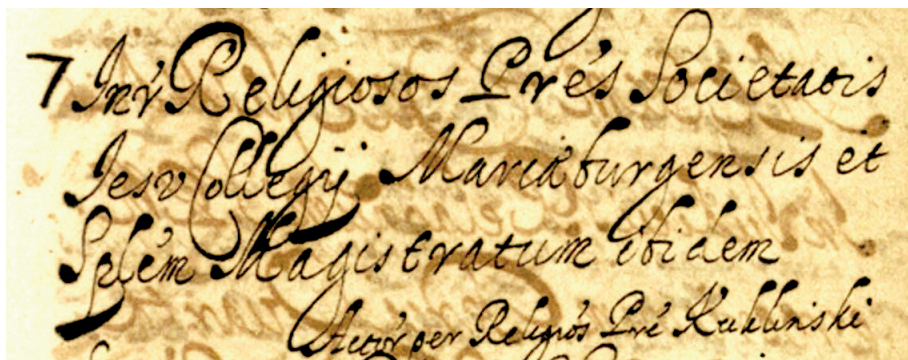 7 Inr̃ Religiosos Prés Societatis
Iesv Collegÿ Mariæburgensis et
Splém Magistratum ibidem
Actór per Religiós Pré Kuklinski